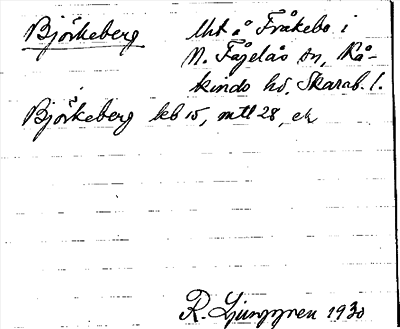 Björkeberg Uts å Fråkebo i
N. Fågelås sn, Kå-
kinds hd, Skarab. l.
Björkeberg keb 15, mtl 28, ek
R. Ljunggren 1930